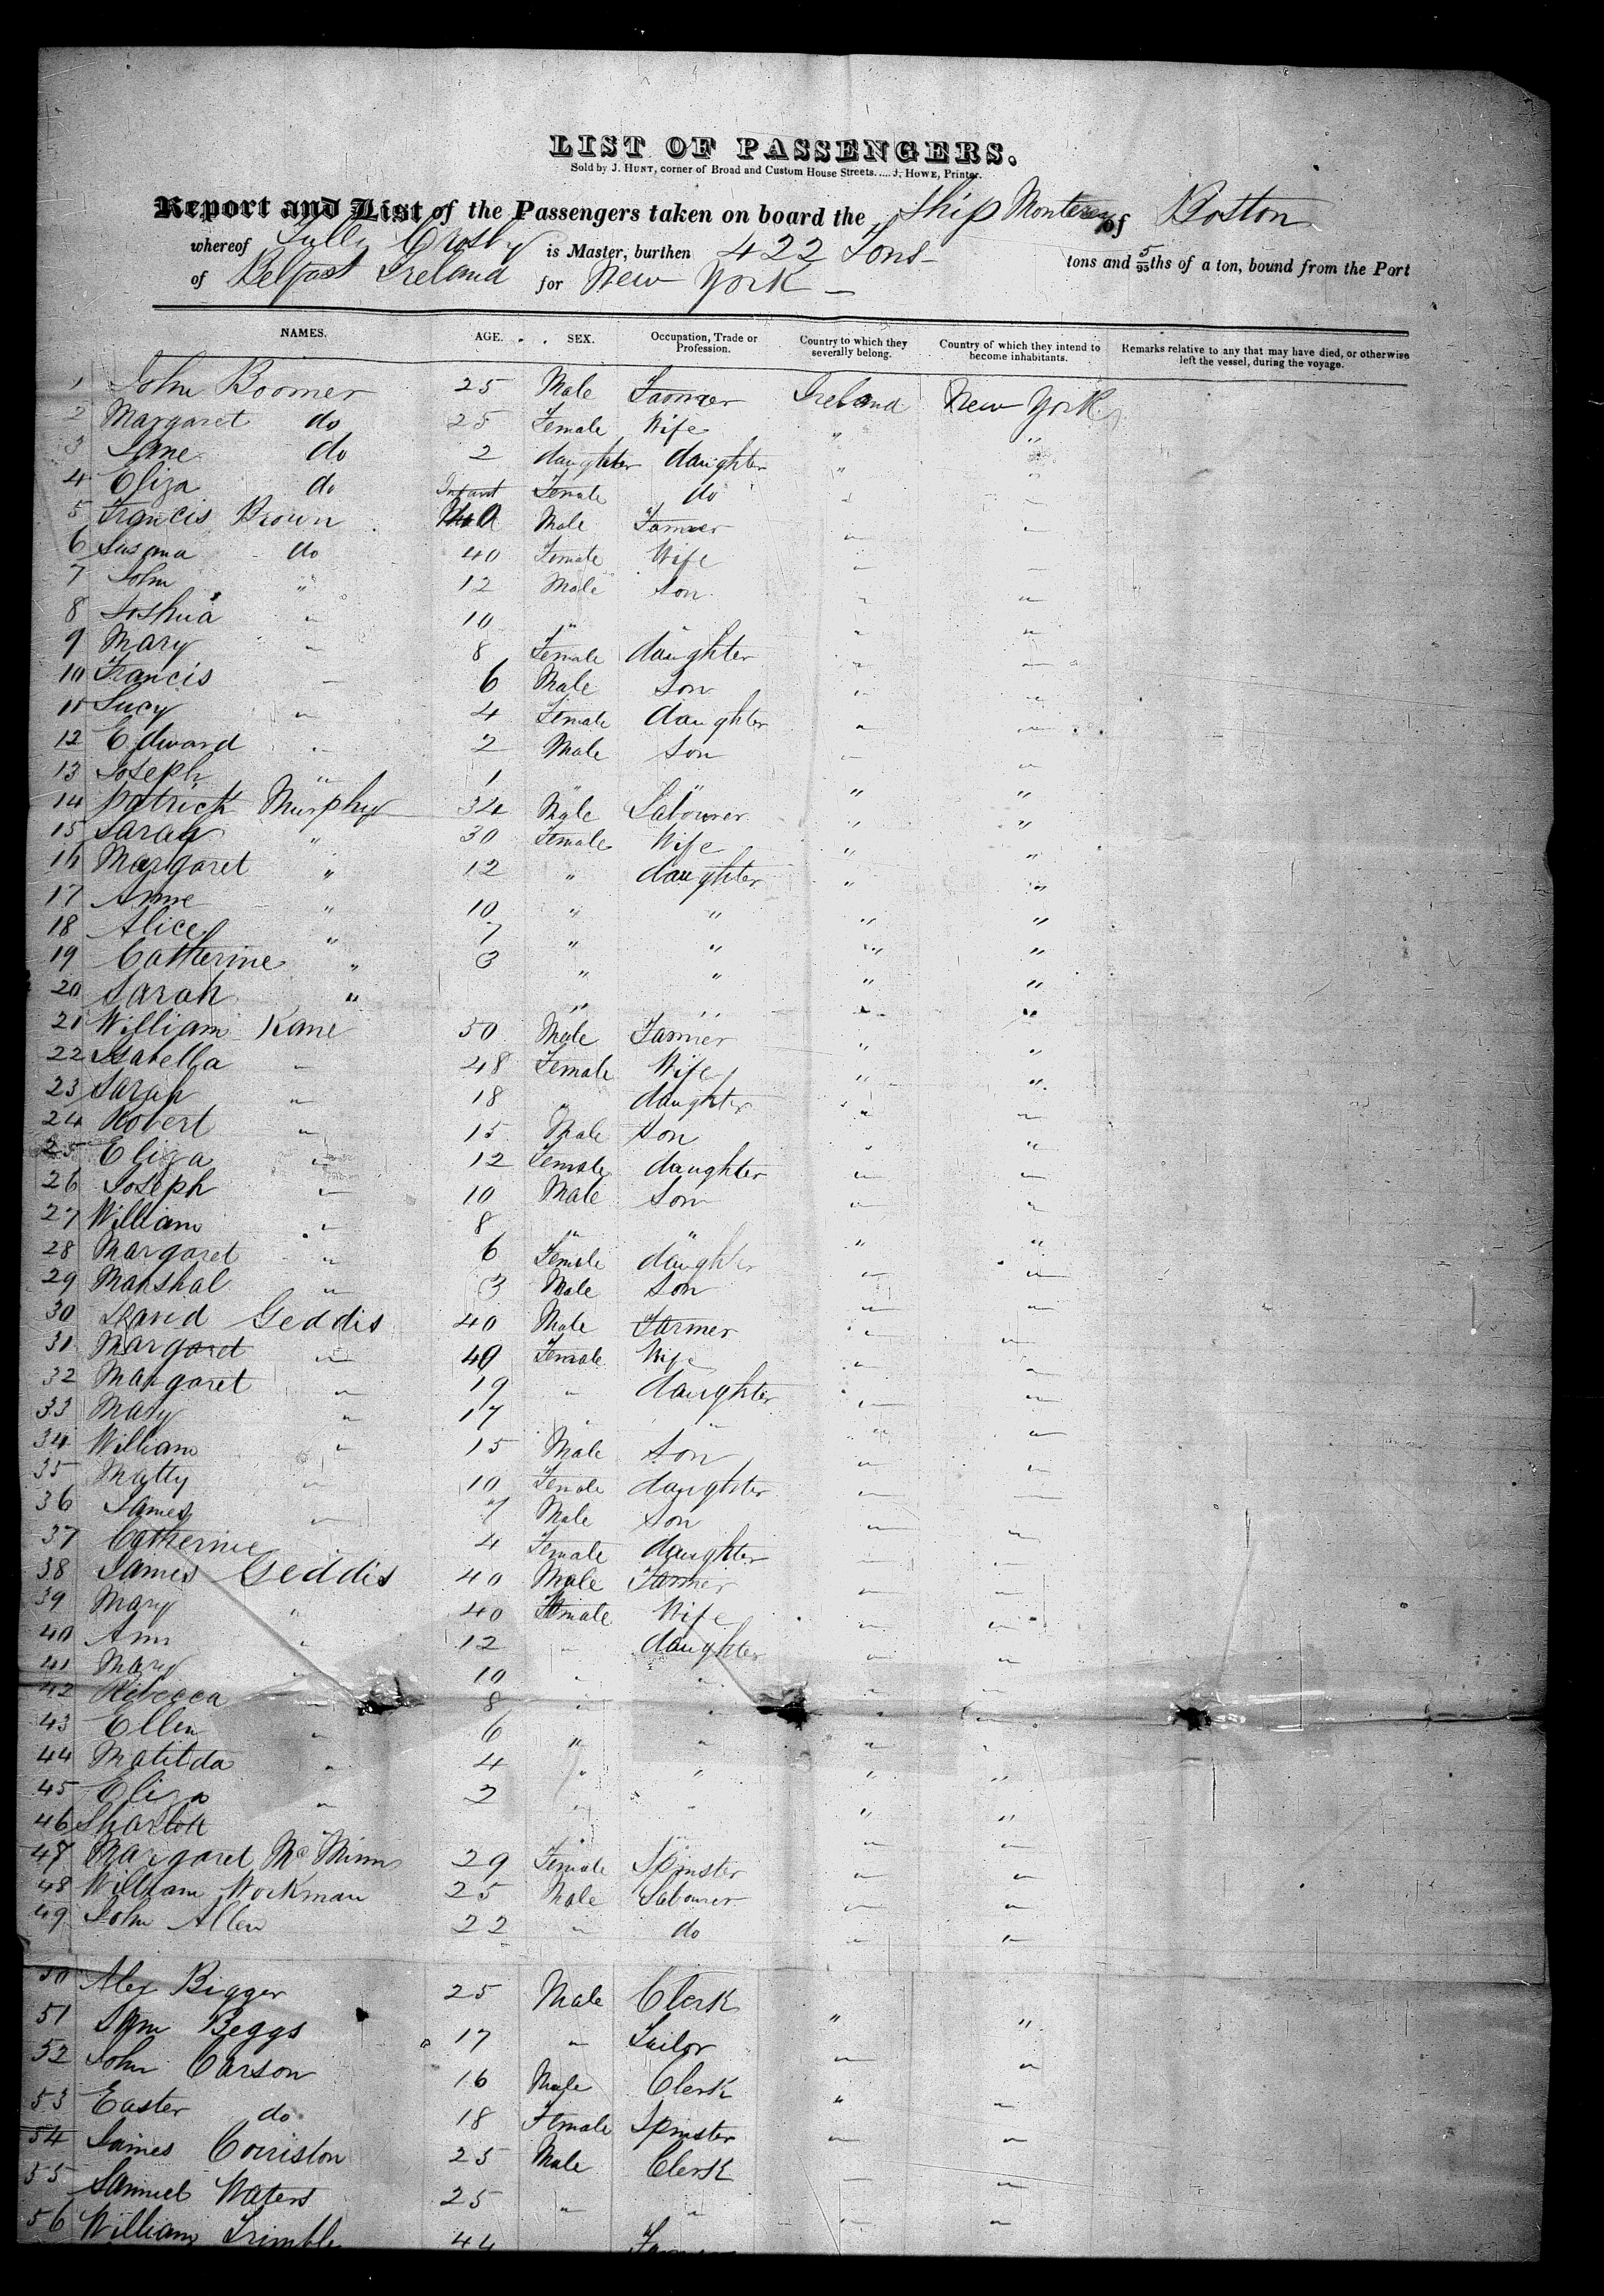 LIST OF PASSENGERS.
Sold by J. HUNT, corner of Broad and Custom House Streets.....J. HOWE, Printer.
Report and List of the Passengers taken on board the Ship Monterey of Boston
whereof Tully Crosby is Master, burthen 422 Tons tons and 5/95ths of a ton, bound from the Port
of Belfast Ireland for New York
NAMES. AGE. SEX. Occupation, Trade or Profession. Country to which they severally belong. Country of which they intend to become inhabitants. Remarks relative to any that may have died, or otherwise left the vessel, during the voyage.
1 John Boomer 25 Male Farmer Ireland New York
2 Margaret do 25 Female Wife " "
3 Jane do 2 daughter daughter " "
4 Eliza do Infant Female do " "
5 Francis Brown Male Farmer " "
6 Susana do 40 Female Wife " "
7 John " 12 Male Son " "
8 Joshua " 10 " " " "
9 Mary " 8 Female daughter " "
10 Francis " 6 Male Son " "
11 Lucy " 4 Female daughter " "
12 Edward " 2 Male Son " "
13 Joseph " 1 " " " "
14 Patrick Murphy 34 Male Labourer " "
15 Sarah " 30 Female Wife " "
16 Margaret " 12 " daughter " "
17 Anne " 10 " " " "
18 Alice " 7 " " " "
19 Catherine " 3 " " " "
20 Sarah " " " " "
21 William Kane 50 Male Farmer " "
22 Isabella " 48 Female Wife " "
23 Sarah " 18 " daughter " "
24 Robert " 15 Male Son " "
25 Eliza " 12 Female daughter " "
26 Joseph " 10 Male Son " "
27 William " 8 " " " "
28 Margaret " 6 Female daughter " "
29 Marshal " 3 Male Son " "
30 David Geddis 40 Male Farmer " "
31 Margaret " 40 Female Wife " "
32 Margaret " 19 " daughter " "
33 Mary " 17 " " " "
34 William " 15 Male Son " "
35 Matty " 10 Female daughter " "
36 James " 7 Male Son " "
37 Catherine " 4 Female daughter " "
38 James Geddis 40 Male Farmer " "
39 Mary " 40 Female Wife " "
40 Ann " 12 " daughter " "
41 Mary " 10 " " " "
42 Rebecca " 8 " " " "
43 Ellen " 6 " " " "
44 Matilda " 4 " " " "
45 Eliza " 2 " " " "
46 Sharlott " " " " "
47 Margaret McMinn 29 Female Spinster " "
48 William Workman 25 Male Labourer " "
49 John Allen 22 " do " "
50 Alex Bigger 25 Male Clerk " "
51 Sam Beggs 17 " Tailor " "
52 John Carson 16 Male Clerk " "
53 Easter do 18 Female Spinster " "
54 James Corriston 25 Male Clerk " "
55 Samuel Waters 25 " " " "
56 William Trimble 44